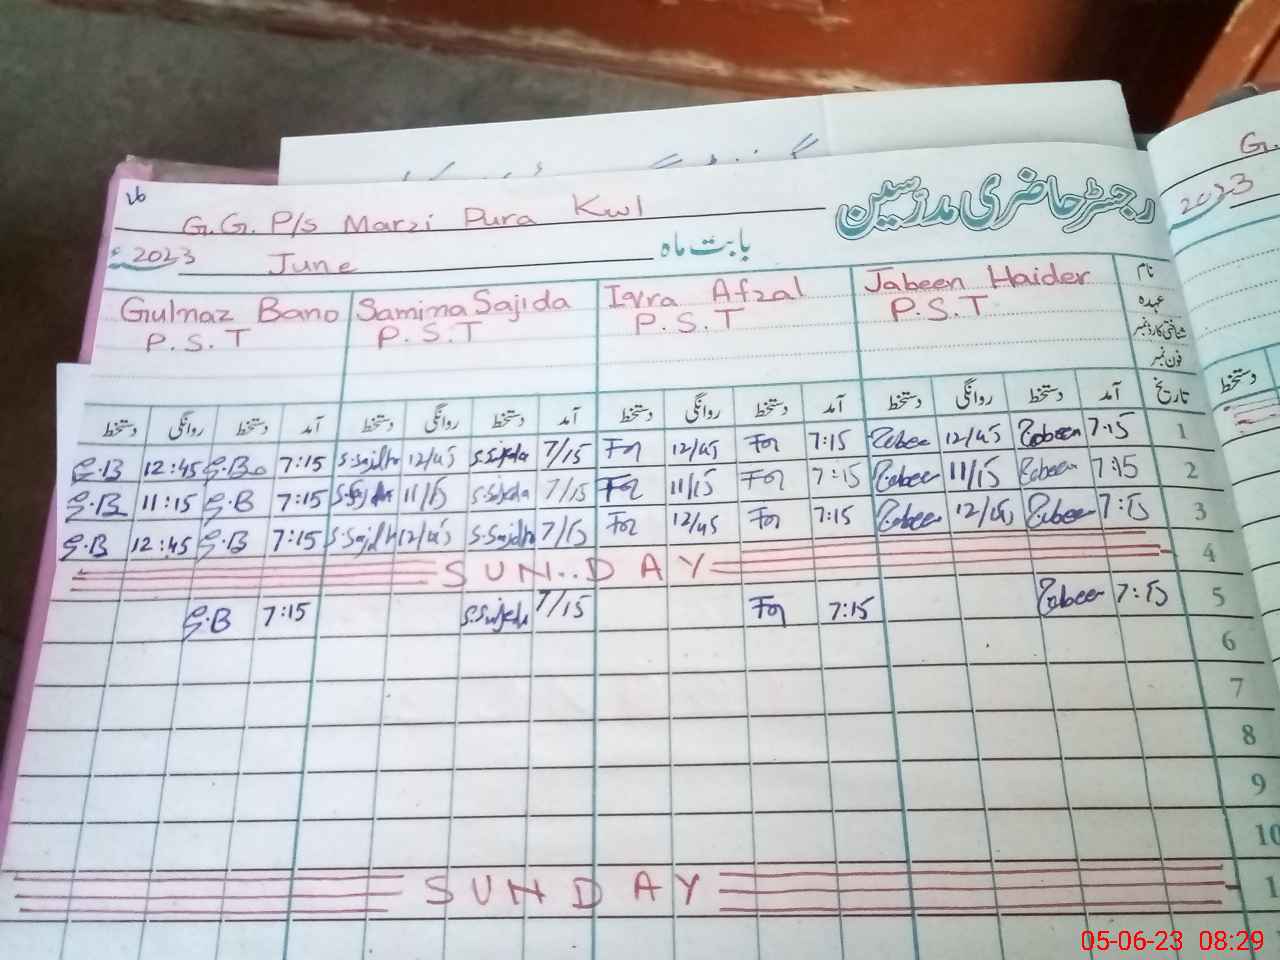 G.G. P/s Marzi Pura Kwl
رجسٹر حاضری مدرسین
2023ء June بابت ماہ
Gulnaz Bano Samina Sajida Iqra Afzal Jabeen Haider نام
P.S.T P.S.T P.S.T P.S.T عہدہ
شناختی کارڈ نمبر
فون نمبر
دستخط روانگی دستخط آمد دستخط روانگی دستخط آمد دستخط روانگی دستخط آمد دستخط روانگی دستخط آمد تاریخ
G.B 12:45 7:15 12/45 7/15 12/45 7:15 12/45 7:15 1
G.B 11:15 G.B 7:15 11/15 S.Sajida 7/15 11/15 7:15 11/15 7:15 2
G.B 12:45 G.B 7:15 12/45 7/15 12/45 7:15 12/45 7:15 3
SUN..DAY 4
G.B 7:15 S.Sajida 7/15 7:15 7:15 5
6
7
8
9
10
SUNDAY 1
G.
2023
دستخط
05-06-23 08:29